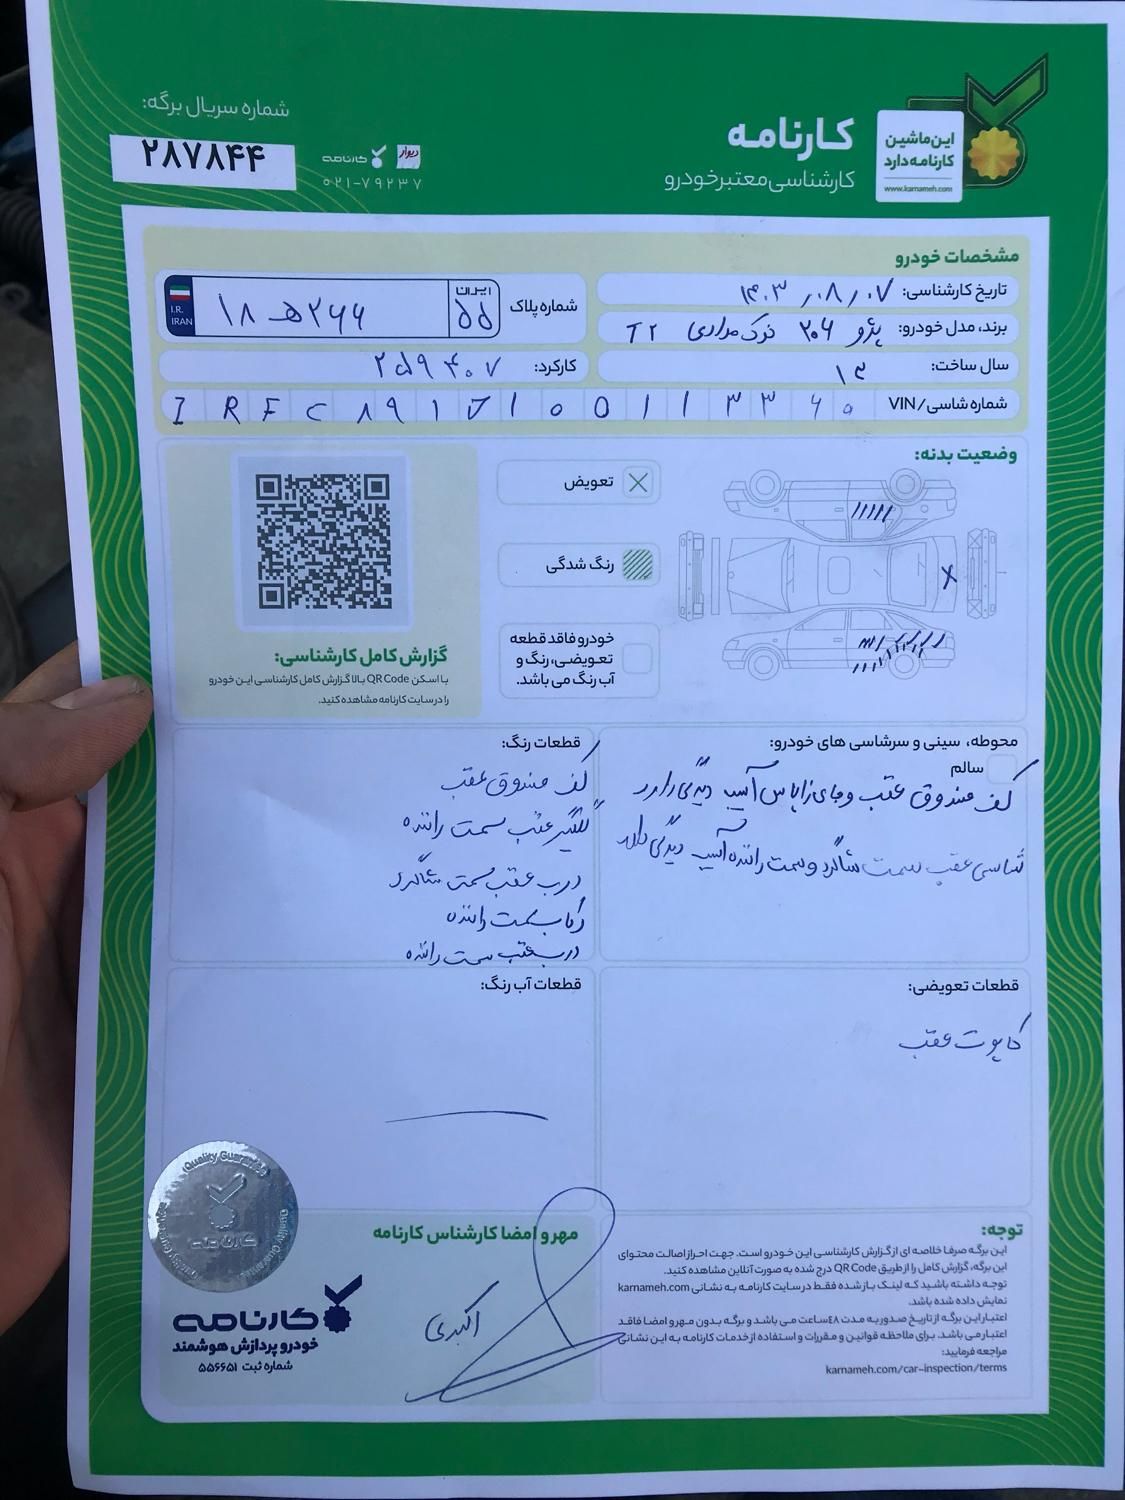 شماره سریال برگه:
۲۸۷۸۴۴
دیوار کارنامه
۰۲۱-۷۹۲۳۷
کارنامه
کارشناسی معتبر خودرو
این ماشین
کارنامه دارد
www.karnameh.com
مشخصات خودرو
تاریخ کارشناسی: ۱۴۰۳/۰۸/۰۷
شماره پلاک
ایران
۵۵
۱۸ ه ۲۶۶
I.R.
IRAN
برند، مدل خودرو: پژو ۲۰۶ نوک مدادی T2
سال ساخت: ۱۳
کارکرد: ۲۵۹۴۰۷
شماره شاسی/ VIN I R F C ۸ ۹ ۱ V ۱ ۵ ۵ ۱ ۱ ۳ ۳ ۶ ۵
وضعیت بدنه:
تعویض
رنگ شدگی
خودرو فاقد قطعه
تعویضی، رنگ و
آب رنگ می باشد.
گزارش کامل کارشناسی:
با اسکن QR Code بالا گزارش کامل کارشناسی این خودرو
را در سایت کارنامه مشاهده کنید.
محوطه، سینی و سرشاسی های خودرو:
سالم
کف صندوق عقب و جای زاپاس آسیب دیدگی دارد
شاسی عقب سمت شاگرد و سمت راننده آسیب دیدگی دارد
قطعات رنگ:
کف صندوق عقب
گلگیر عقب سمت راننده
درب عقب سمت شاگرد
رکاب سمت راننده
درب عقب سمت راننده
قطعات تعویضی:
کاپوت عقب
قطعات آب رنگ:
توجه:
این برگه صرفا خلاصه ای از گزارش کارشناسی این خودرو است. جهت احراز اصالت محتوای
این برگه، گزارش کامل را از طریق QR Code درج شده به صورت آنلاین مشاهده کنید.
توجه داشته باشید که لینک باز شده فقط در سایت کارنامه به نشانی karnameh.com
نمایش داده شده باشد.
اعتبار این برگه از تاریخ صدور به مدت ۴۸ ساعت می باشد و برگه بدون مهر و امضا فاقد
اعتبار می باشد. برای ملاحظه قوانین و مقررات و استفاده از خدمات کارنامه به این نشانی
مراجعه فرمایید:
karnameh.com/car-inspection/terms
مهر و امضا کارشناس کارنامه
اکبری
Quality Guarantee
کارنامه
کارنامه
خودرو پردازش هوشمند
شماره ثبت ۵۵۶۶۵۱